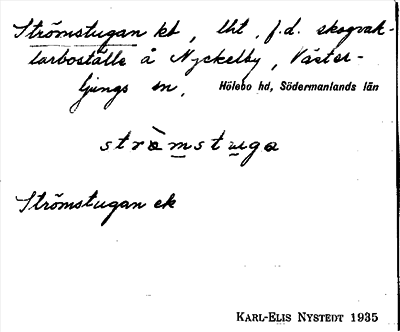 Strömstugan kt, lht, f.d. skogvak-
tarboställe å Nyckelby, Väster-
ljungs sn, Hölebo hd, Södermanlands län
strömstuga
Strömstugan ek
KARL-ELIS NYSTEDT 1935